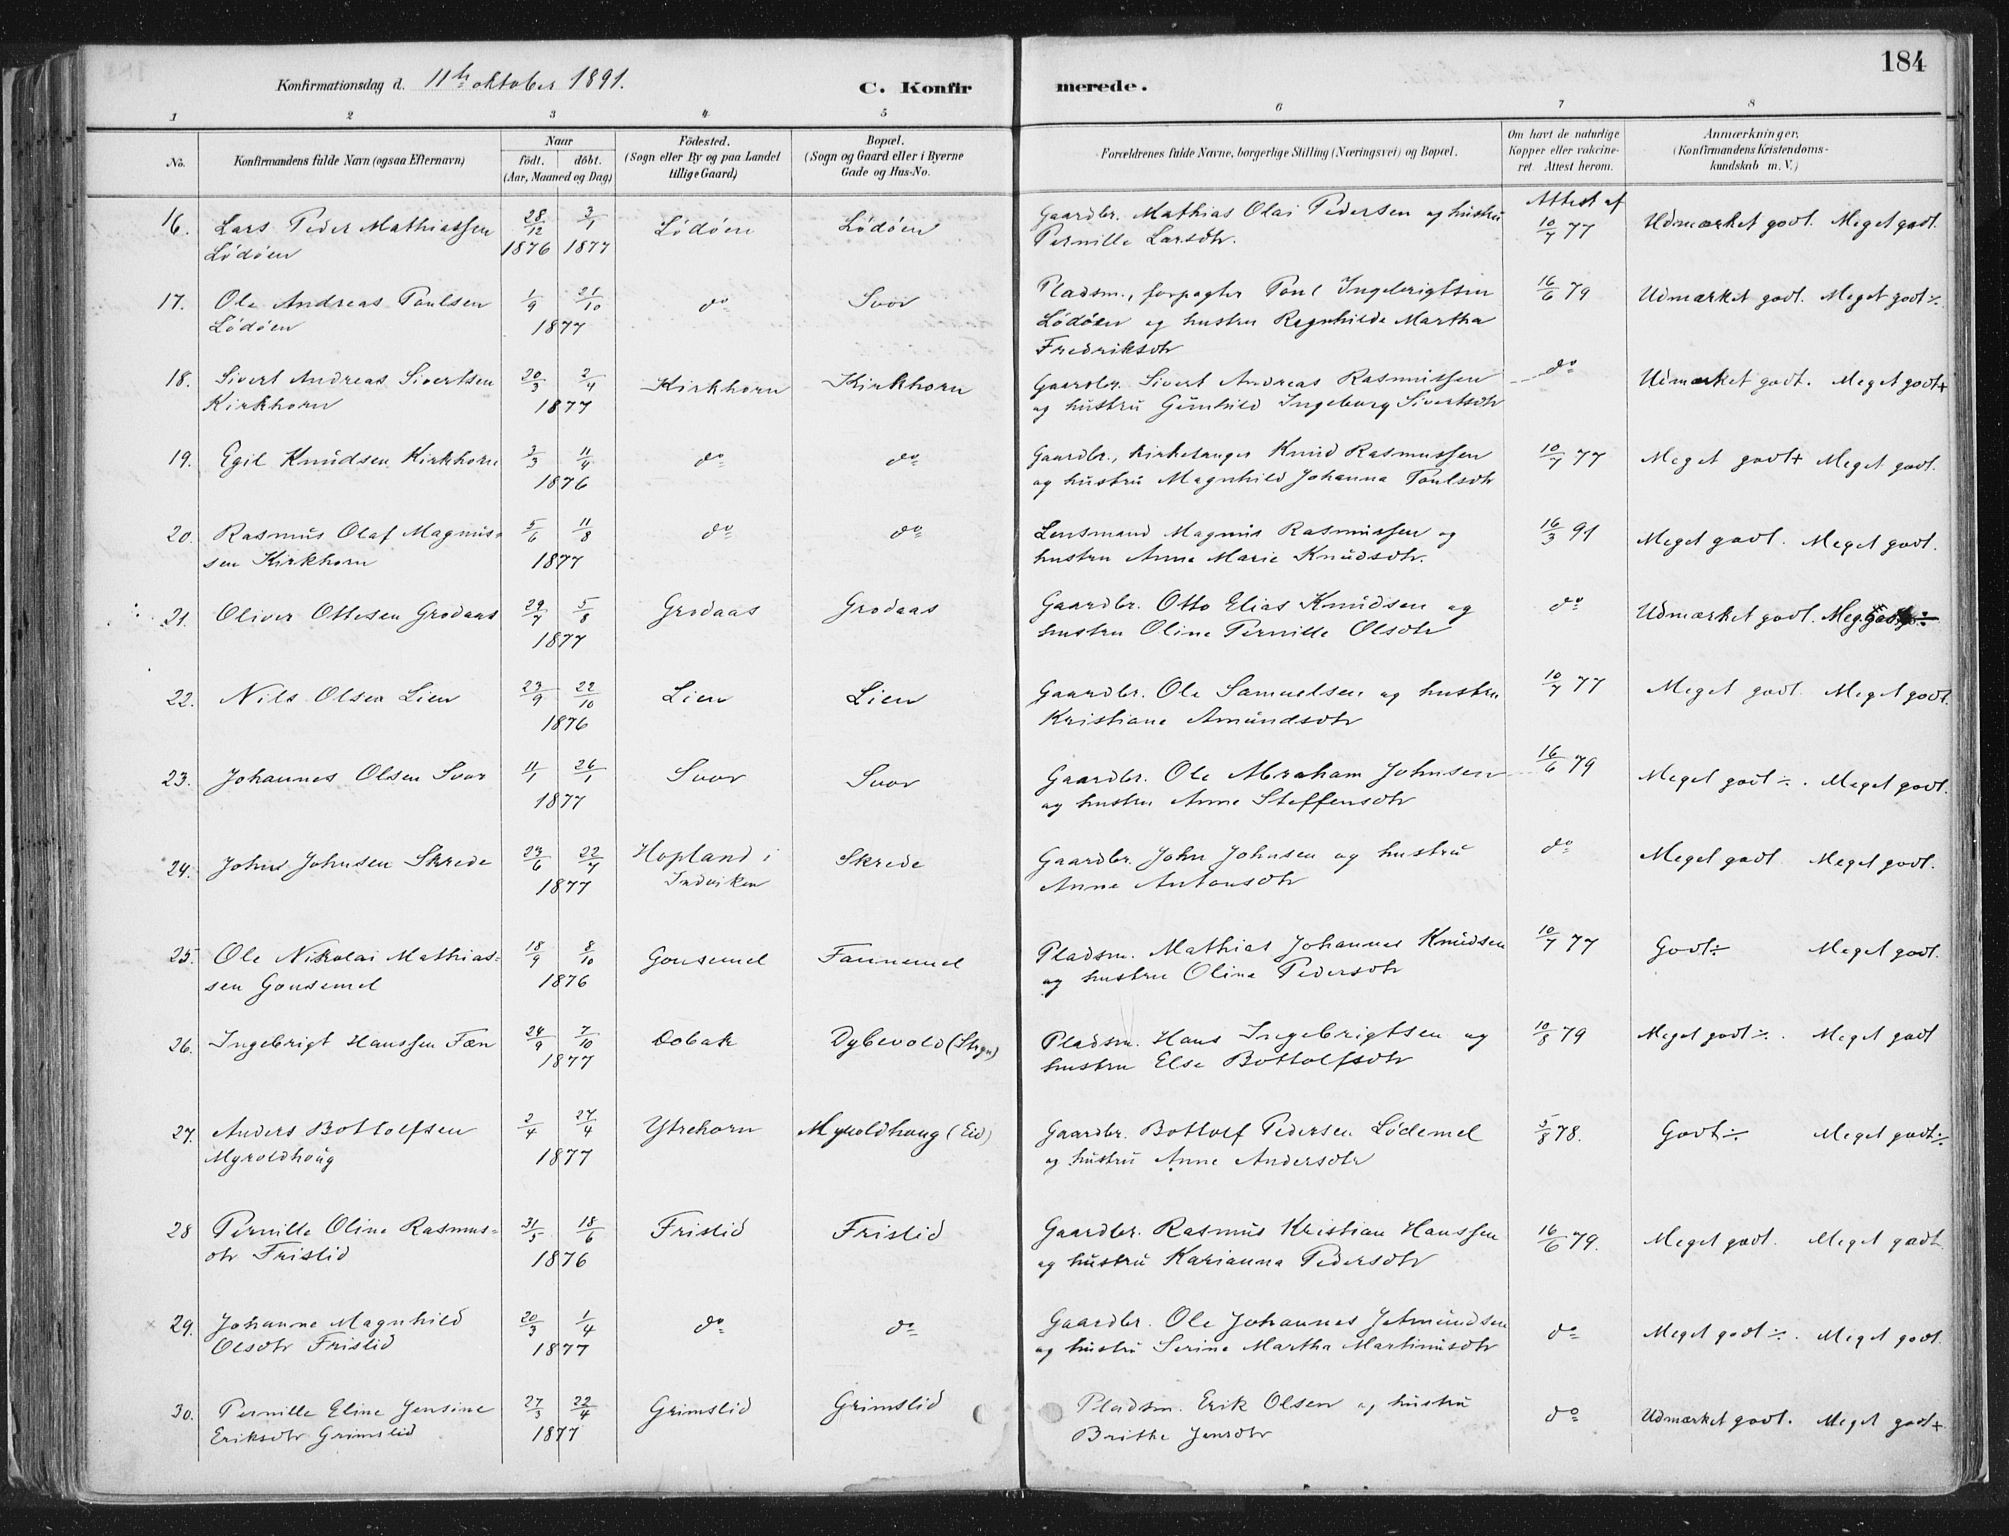 184
Konfirmationsdag d. 11te oktober 1891.
C. Konfirmerede.
1 2 3 4 5 6 7 8
No.
Konfirmandens fulde Navn (ogsaa Efternavn)
Naar
födt. döbt.
(Aar, Maaned og Dag)
Födested.
(Sogn eller By og paa Landet
tillige Gaard)
Bopæl.
(Sogn og Gaard eller i Byerne
Gade og Hus-No.
Forældrenes fulde Navne, borgerlige Stilling (Næringsvei) og Bopæl.
Om havt de naturlige
Kopper eller vakcine-
ret. Attest herom.
Anmærkninger.
(Konfirmandens Kristendoms-
kundskab m. V.)
16. Lars Peder Mathiassen 28/12 3/1 Lödöen Lödöen Gaardbr. Mathias Olai Pedersen og hustru Attest af 10/7 77 Udmærket godt. Meget godt.
Lödöen 1876 1877 Pernille Larsdtr.
17. Ole Andreas Poulsen 1/9 21/10 do Svor Pladsm., forpagter Poul Ingebrigtsen 16/6 79 Udmærket godt. Meget godt÷
Lödöen 1877 Lödöen og hustru Ragnhilde Martha
Fredriksdtr
18. Sivert Andreas Sivertsen 20/3 2/4 Kirkhorn Kirkhorn Gaardbr. Sivert Andreas Rasmussen do Udmærket godt. Meget godt+
Kirkhorn 1877 og hustru Gunhild Ingeborg Sivertsdtr
19. Egil Knudsen Kirkhorn 3/3 11/4 do do Gaardbr., kirkesanger Knud Rasmussen 10/7 77 Meget godt+ Meget godt.
1876 og hustru Magnhild Johanna Poulsdtr
20. Rasmus Olaf Magnus- 5/6 11/8 do do Lensmand Magnus Rasmussen og 16/3 91 Meget godt. Meget godt.
sen Kirkhorn 1877 hustru Anne Marie Knudsdtr.
21. Oliver Ottesen Grodaas 29/7 5/8 Grodaas Grodaas Gaardbr. Otto Elias Knudsen og do Udmærket godt. Meg. godt÷
1877 hustru Oline Pernille Olsdtr
22. Nils Olsen Lien 23/9 22/10 Lien Lien Gaardbr. Ole Samuelsen og hustru 10/7 77 Meget godt. Meget godt.
1876 Kristiane Amundsdtr
23. Johannes Olsen Svor 11/1 26/1 Svor Svor Gaardbr. Ole Abraham Johnsen 16/6 79 Meget godt÷. Meget godt.
1877 og hustru Anne Steffensdtr
24. John Johnsen Skrede 23/6 22/7 Hopland i Skrede Gaardbr. John Johnsen og hustru do Meget godt Meget godt.
1877 Indviken Anne Antonsdtr
25. Ole Nikolai Mathias- 18/9 8/10 Gousemel Fannemel Pladsm. Mathias Johannes Knudsen 10/7 77 Godt÷ Meget godt.
sen Gousemel 1876 og hustru Oline Pedersdtr
26. Ingebrigt Hanssen Fæn 24/9 7/10 Dobak Dybevold (Skgn) Pladsm. Hans Ingebrigtsen og 10/8 79 Meget godt÷. Meget godt
1877 hustru Else Bottolfsdtr
27. Anders Bottolfsen 2/4 27/4 Ytrehorn Myroldhoug (Eid) Gaardbr. Bottolf Pedersen Lödemel 5/8 78. Godt÷ Meget godt÷
Myroldhoug 1877 og hustru Anne Andersdtr
28 Pernille Oline Rasmus- 31/5 18/6 Frislid Frislid Gaardbr. Rasmus Kristian Hanssen 16/6 79. Meget godt. Meget godt
dtr Frislid 1876 og hustru Karianna Pedersdtr
29. Johanne Magnhild 20/3 1/4 do do Gaardbr. Ole Johannes Jetmundsen do Meget godt÷. Meget godt.
Olsdtr Frislid 1877 og hustru Serine Martha Martinusdtr
30. Pernille Eline Jensine 27/3 22/4 Grimslid Grimslid Pladsm. Erik Olsen og hustru do Udmærket godt. Meget godt+
Eriksdtr Grimslid 1877 Brithe Jensdtr